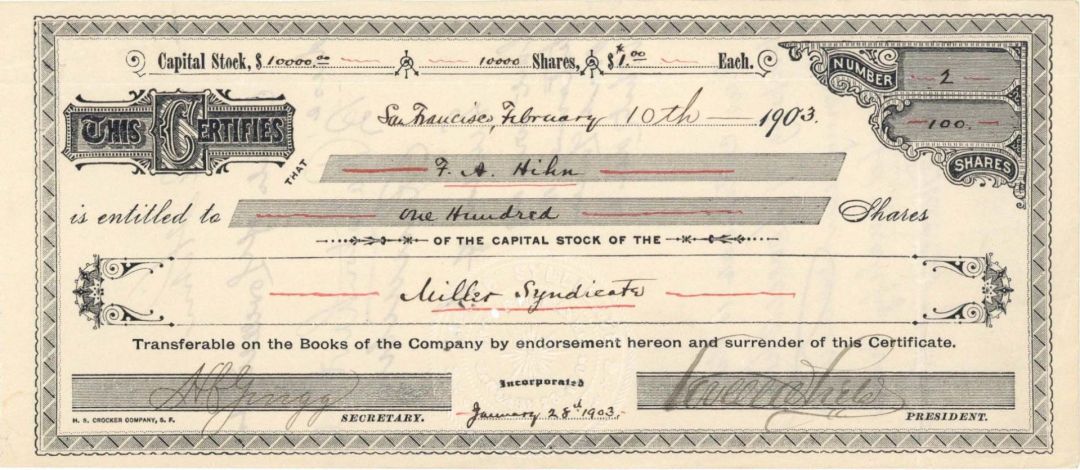 Capital Stock, $ 10000.00 10000 Shares, $ 1.00 Each.
NUMBER 2
THIS CERTIFIES
San Francisco, February 10th 1903.
100.
SHARES
THAT
F. A. Hihn
is entitled to One Hundred Shares
OF THE CAPITAL STOCK OF THE
Miller Syndicate
Transferable on the Books of the Company by endorsement hereon and surrender of this Certificate.
Incorporated
January 28th 1903.
SECRETARY.
PRESIDENT.
H. S. CROCKER COMPANY, S. F.